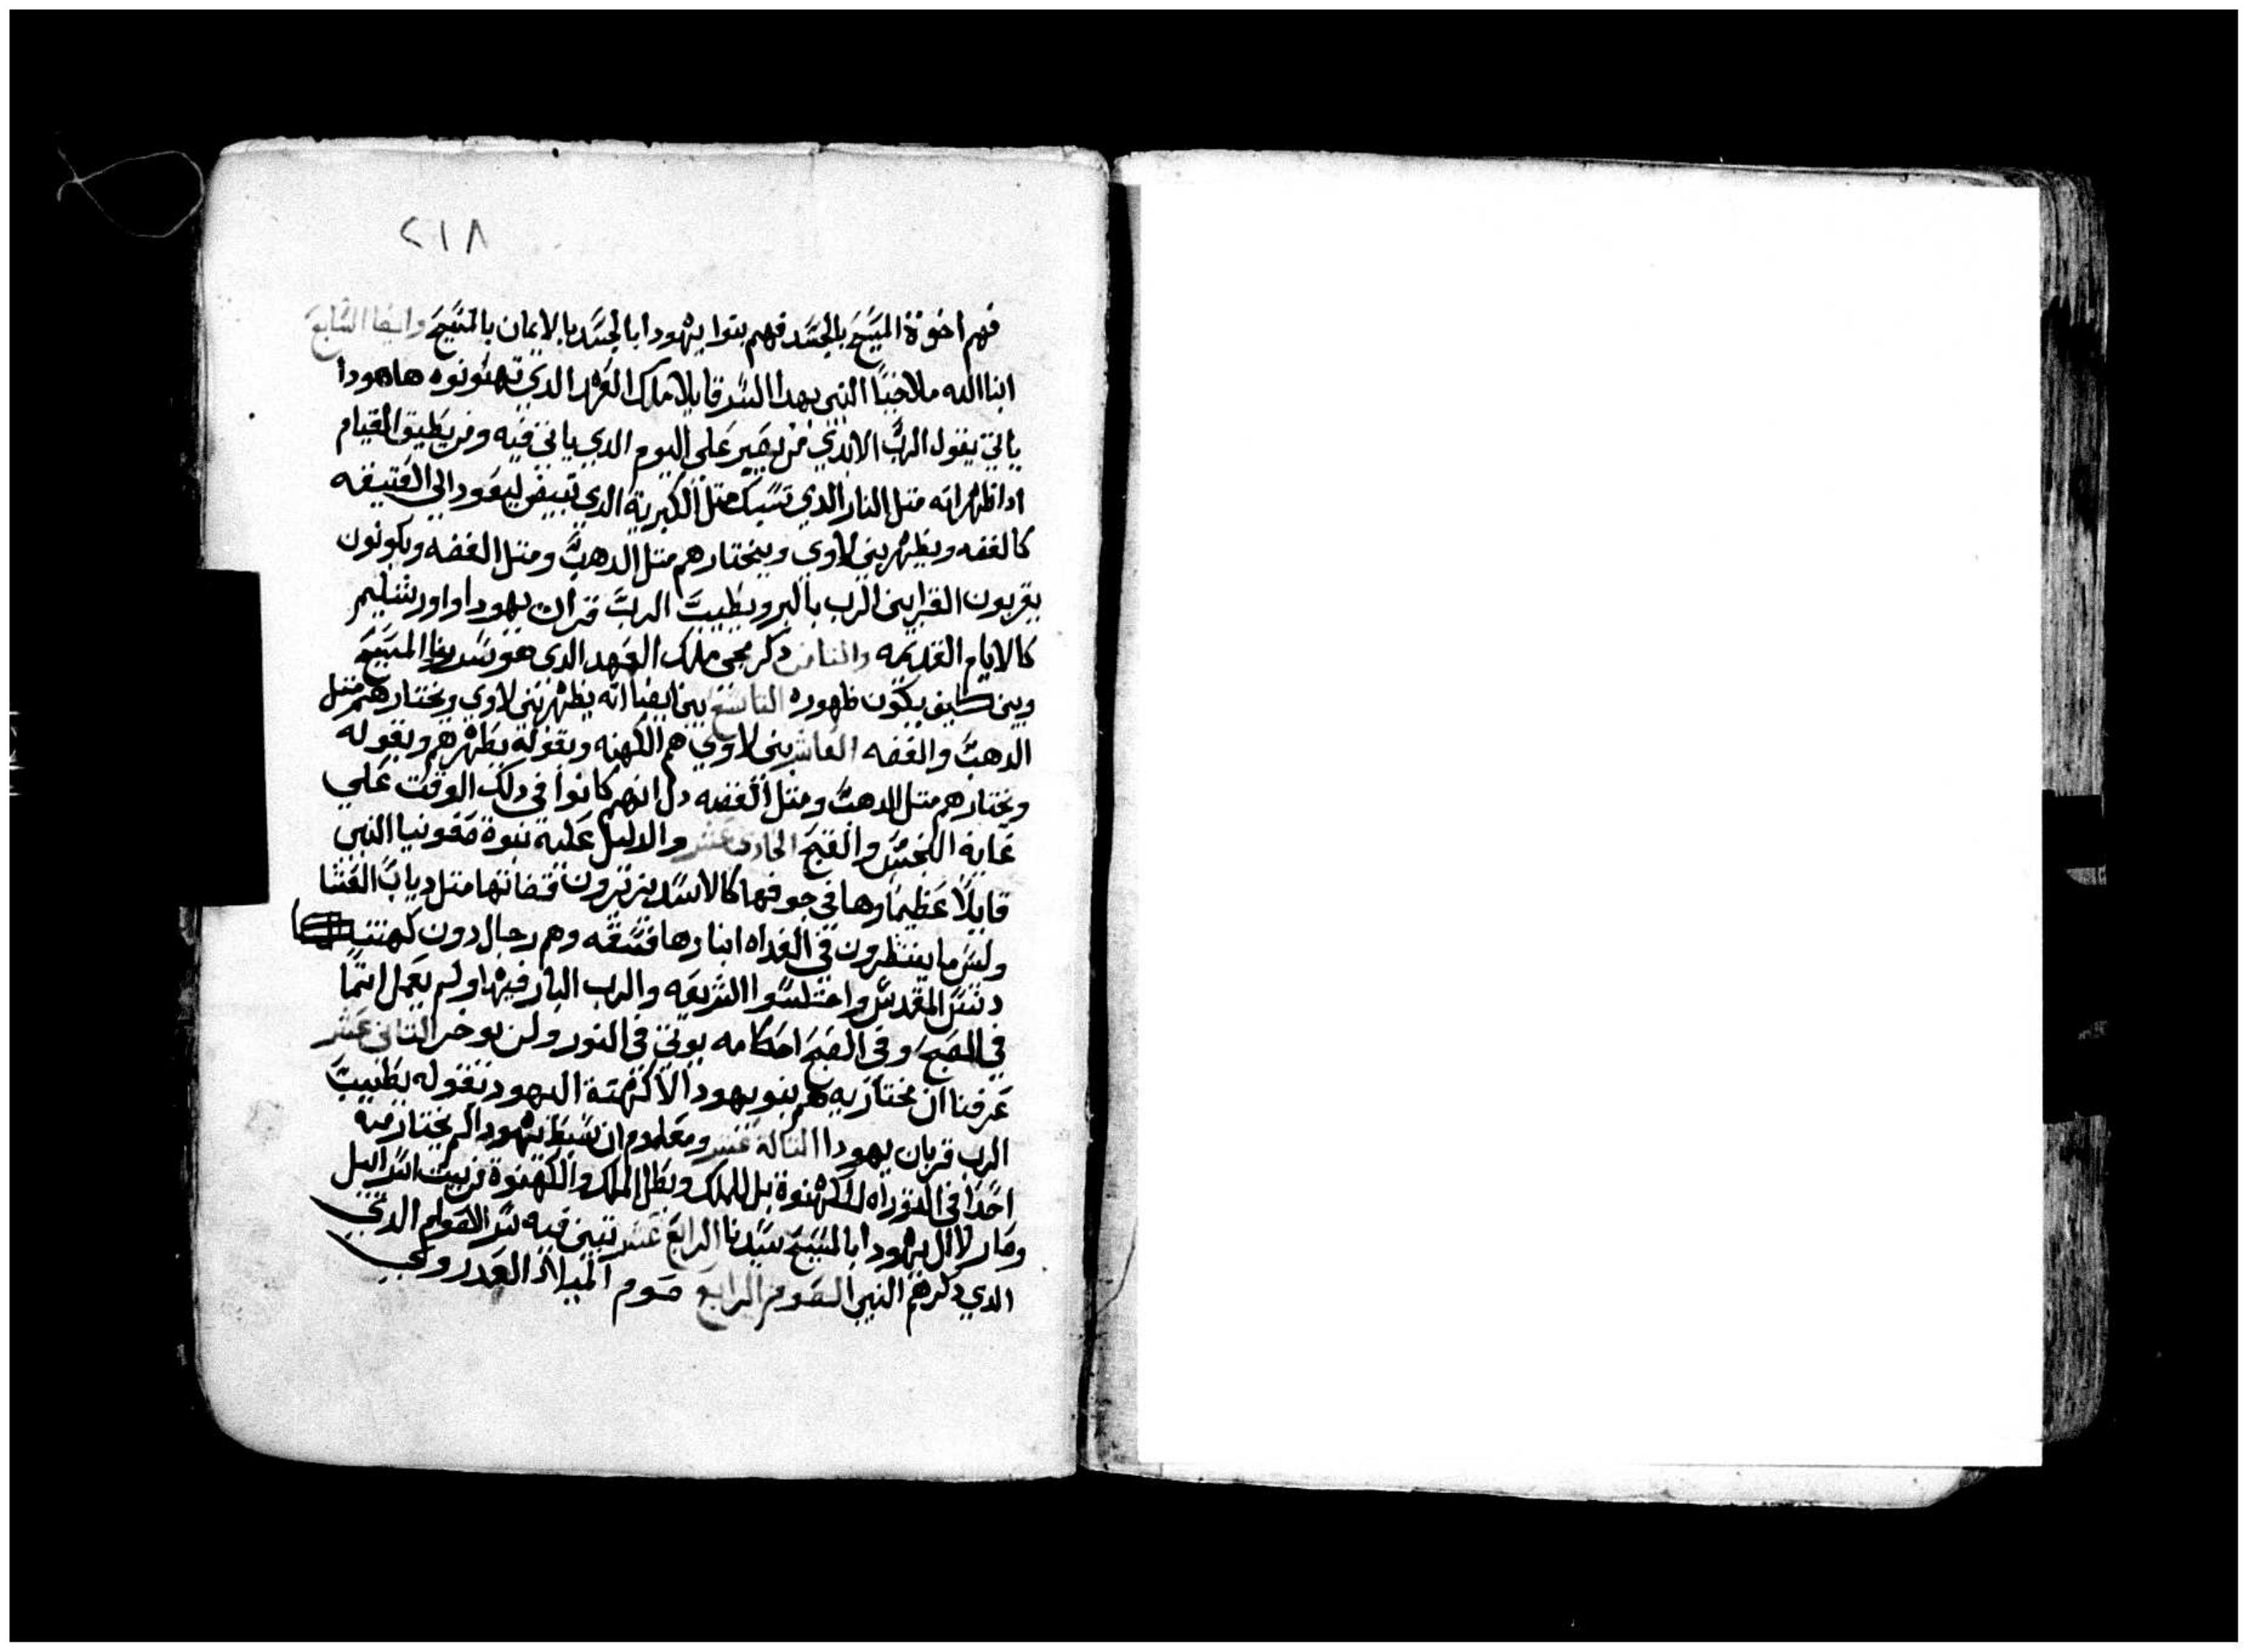 ٢١٨
فهم اخوة المسيح بالجسد فهم بنوا يهودا بالجسد بالايمان بالمسيح وايضا السابع
ابنا الله ملاخيا النبي بهدا السر قايلا ملاك العهد الدي تهوونوه هاهودا
ياتي يقول الرب الالدي من يصبر علي اليوم الدي ياتي فيه ومن يطيق القيام
ادا ظهر انه متل النار الدي تسبك متل الكبرية الدي تبيض ليعود الي العتيقه
كالفضه ويطهر بني لاوي ويختارهم متل الدهب ومتل الفضه ويكونون
يقربون القرابين الرب بالبر ويطيب الرب قربان يهودا واورشليم
كالايام القديمه والتامن دكر مجي ملك العهد الدي هو سيدنا المسيح
وبين كيف يكون ظهوره التاسع بين ايضا انه يطهر بني لاوي ويختارهم متل
الدهب والفضه العاشر بني لاوي هم الكهنه وبقوله يطهرهم وبقوله
ويختارهم متل الدهب ومتل الفضه دل انهم كانوا في دلك الوقت علي
غاية النجس والقبح الحادي عشر والدليل عليه نبوة صفونيا النبي
قايلا عظيماوها في جوفها كالاسد يزيرون قضاتها متل دياب العشا
وليس ما ينتظرون في الغداه انبارها فسقه وهم رجال دون كهنتها
دنس المقدس واختلسوا الشريعه والرب البار فيها ولم يعمل اتما
في الصبح وفي الصبح احكامه يوتي في النور ولن يوخر التاني عشر
عرفنا ان مختاريه هم بنو يهودا لا كهنة اليهود بقوله يطيب
الرب قربان يهودا التالة عشر ومعلوم ان سبط يهودا لم يختار منه
احدا في التوراه للكهنوة بل للملك وبطل الملك والكهنوة من بيت اسراييل
وصار لال يهودا بالمسيح سيدنا الرابع عشر تبين فيه سر الصوام الدي
الدي دكرهم النبي الصوم الرابع صوم الميلاد العدروي